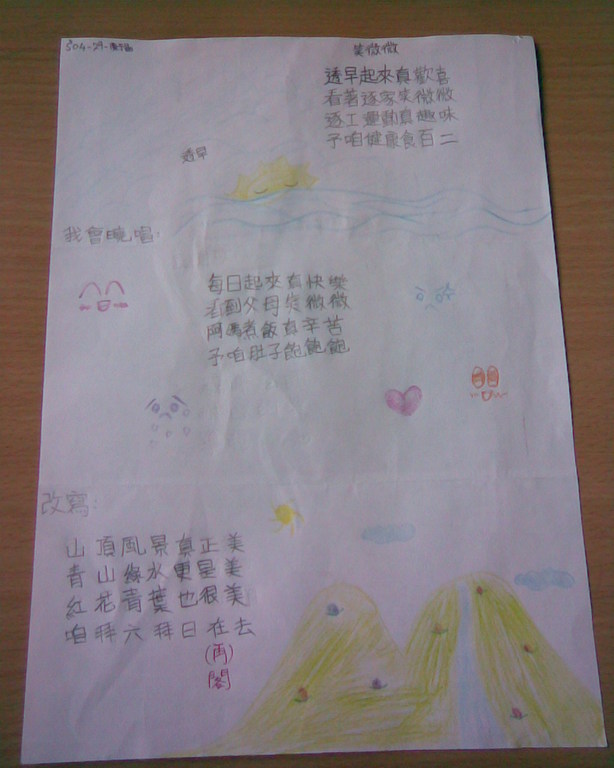 304-29-
笑微微
透早起來真歡喜
看著逐家笑微微
逐工運動真趣味
予咱健康食百二
透早
我會曉唱:
每日起來真快樂
看到父母笑微微
阿媽煮飯真辛苦
予咱肚子飽飽飽
改寫:
山頂風景真正美
青山綠水更是美
紅花青葉也很美
咱拜六拜日在去
(再)
閣